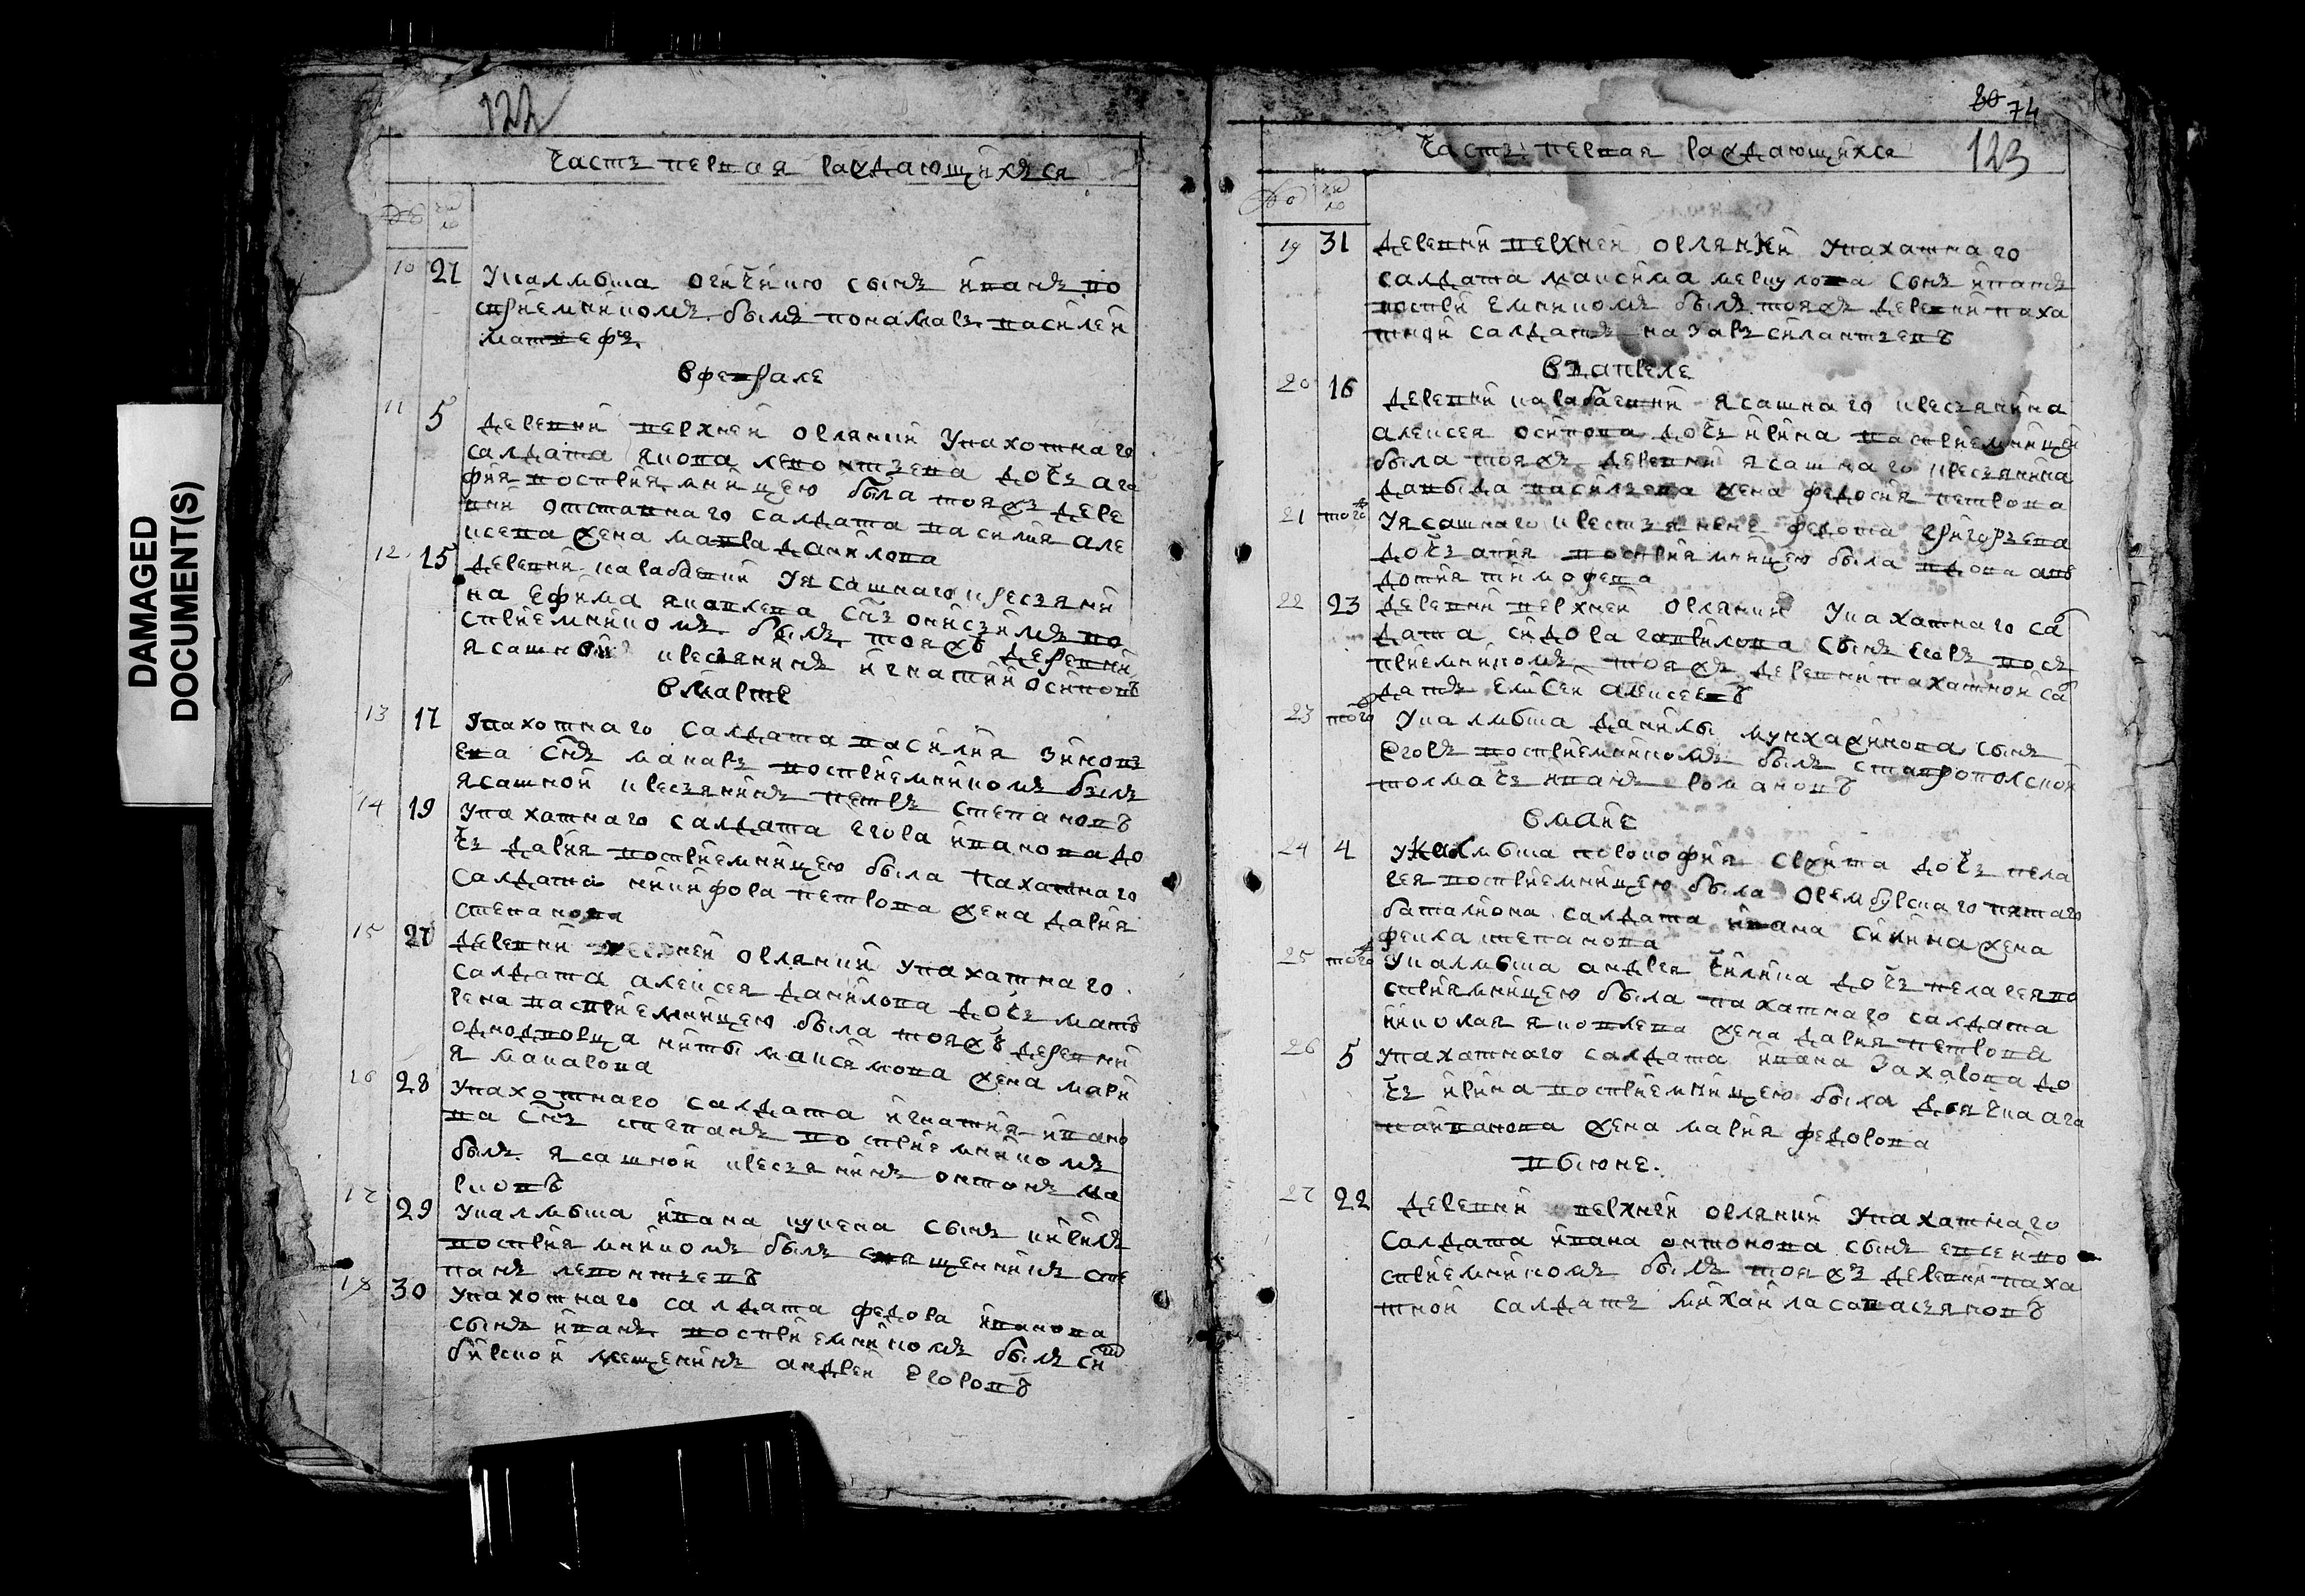 DAMAGED
DOCUMENT(S)
122
Часть первая раждающихъся
№ число
10 27 У калмыка сынъ иванъ во
сприемникомъ былъ понамарь василей
матвефъ
в феврале
11 5 деревни верхней орлянки у пахотнаго
салдата якова левонтьева дочь ага
фия восприемницею была тояжъ дере
вни отставнаго салдата василия але
ксева жена мавра данилова
12 15 деревни карабаевки у ясашнаго кресьяни
на ефима яковлева снъ онисимъ во
сприемникомъ былъ тояжъ деревни
ясашной кресьянинъ игнатий осиповъ
в марте
13 17 у пахотнаго салдата василия зиновь
ева снъ макаръ восприемникомъ былъ
ясашной кресьянинъ петръ степановъ
14 19 у пахатнаго салдата егора иванова до
чь дария восприемницею была пахатнаго
салдата никифора петрова жена дария
степанова
15 27 деревни верхней орлянки у пахатнаго
салдата алексея данилова дочь мат
рена васприемницею была тояжъ деревни
однодворца никиты максимова жена мари
я макарова
16 28 у пахотнаго салдата игнатия ивано
ва снъ степанъ восприемникомъ
былъ ясашной кресьянинъ онтонъ ма
рковъ
17 29 у калмыка ивана сынъ кирилъ
восприямникомъ былъ священникъ сте
панъ левонтьевъ
18 30 у пахотнаго салдата федора иванова
сынъ иванъ восприемникомъ былъ син
бирской мещенинъ андрей егоровъ
80 74
Часть первая раждающихся 123
№ число
19 31 деревни верхней орлянки у пахатнаго
салдата максима меркулова сынъ иванъ
восприемникомъ былъ тояжъ деревни паха
тной салдатъ назаръ силантьевъ
въ апреле
20 16 деревни карабаевки ясашнаго кресьянина
алексея осипова дочь ирина васприемницей
была тояжъ деревни ясашнаго кресьянина
давыда васильева жена федосия петрова
21 того ж у ясашнаго крестьянене федота григорьева
дочь анна восприямницею была вдова авъ
дотия тимофева
22 23 деревни верхней орлянки у пахатнаго сал
дата сидора гаврилова сынъ егоръ восъ
приемникомъ тояжъ деревни пахатной сал
датъ елисей алексеевъ
23 того ж у калмыка данилы мункажинова сынъ
егоръ восприемникомъ былъ ставропольской
толмачь иванъ романовъ
в мание
24 4 у калмыка дочь пела
гея восприемницею была оренбурскаго пятаго
баталиона салдата ивана жена
фекла степанова
25 того ж у калмыка андрея дочь пелагея во
сприямницею была пахатнаго салдата
николая яковлева жена дария петрова
26 5 у пахатнаго салдата ивана захарова до
чь ирина восприемницею была дьячка
жена мария федорова
въ июне.
27 22 деревни верхней орлянки у пахатнаго
салдата ивана онтонова сынъ евсей во
сприемникомъ былъ тояжъ деревни паха
тной салдатъ михайла савасьяновъ